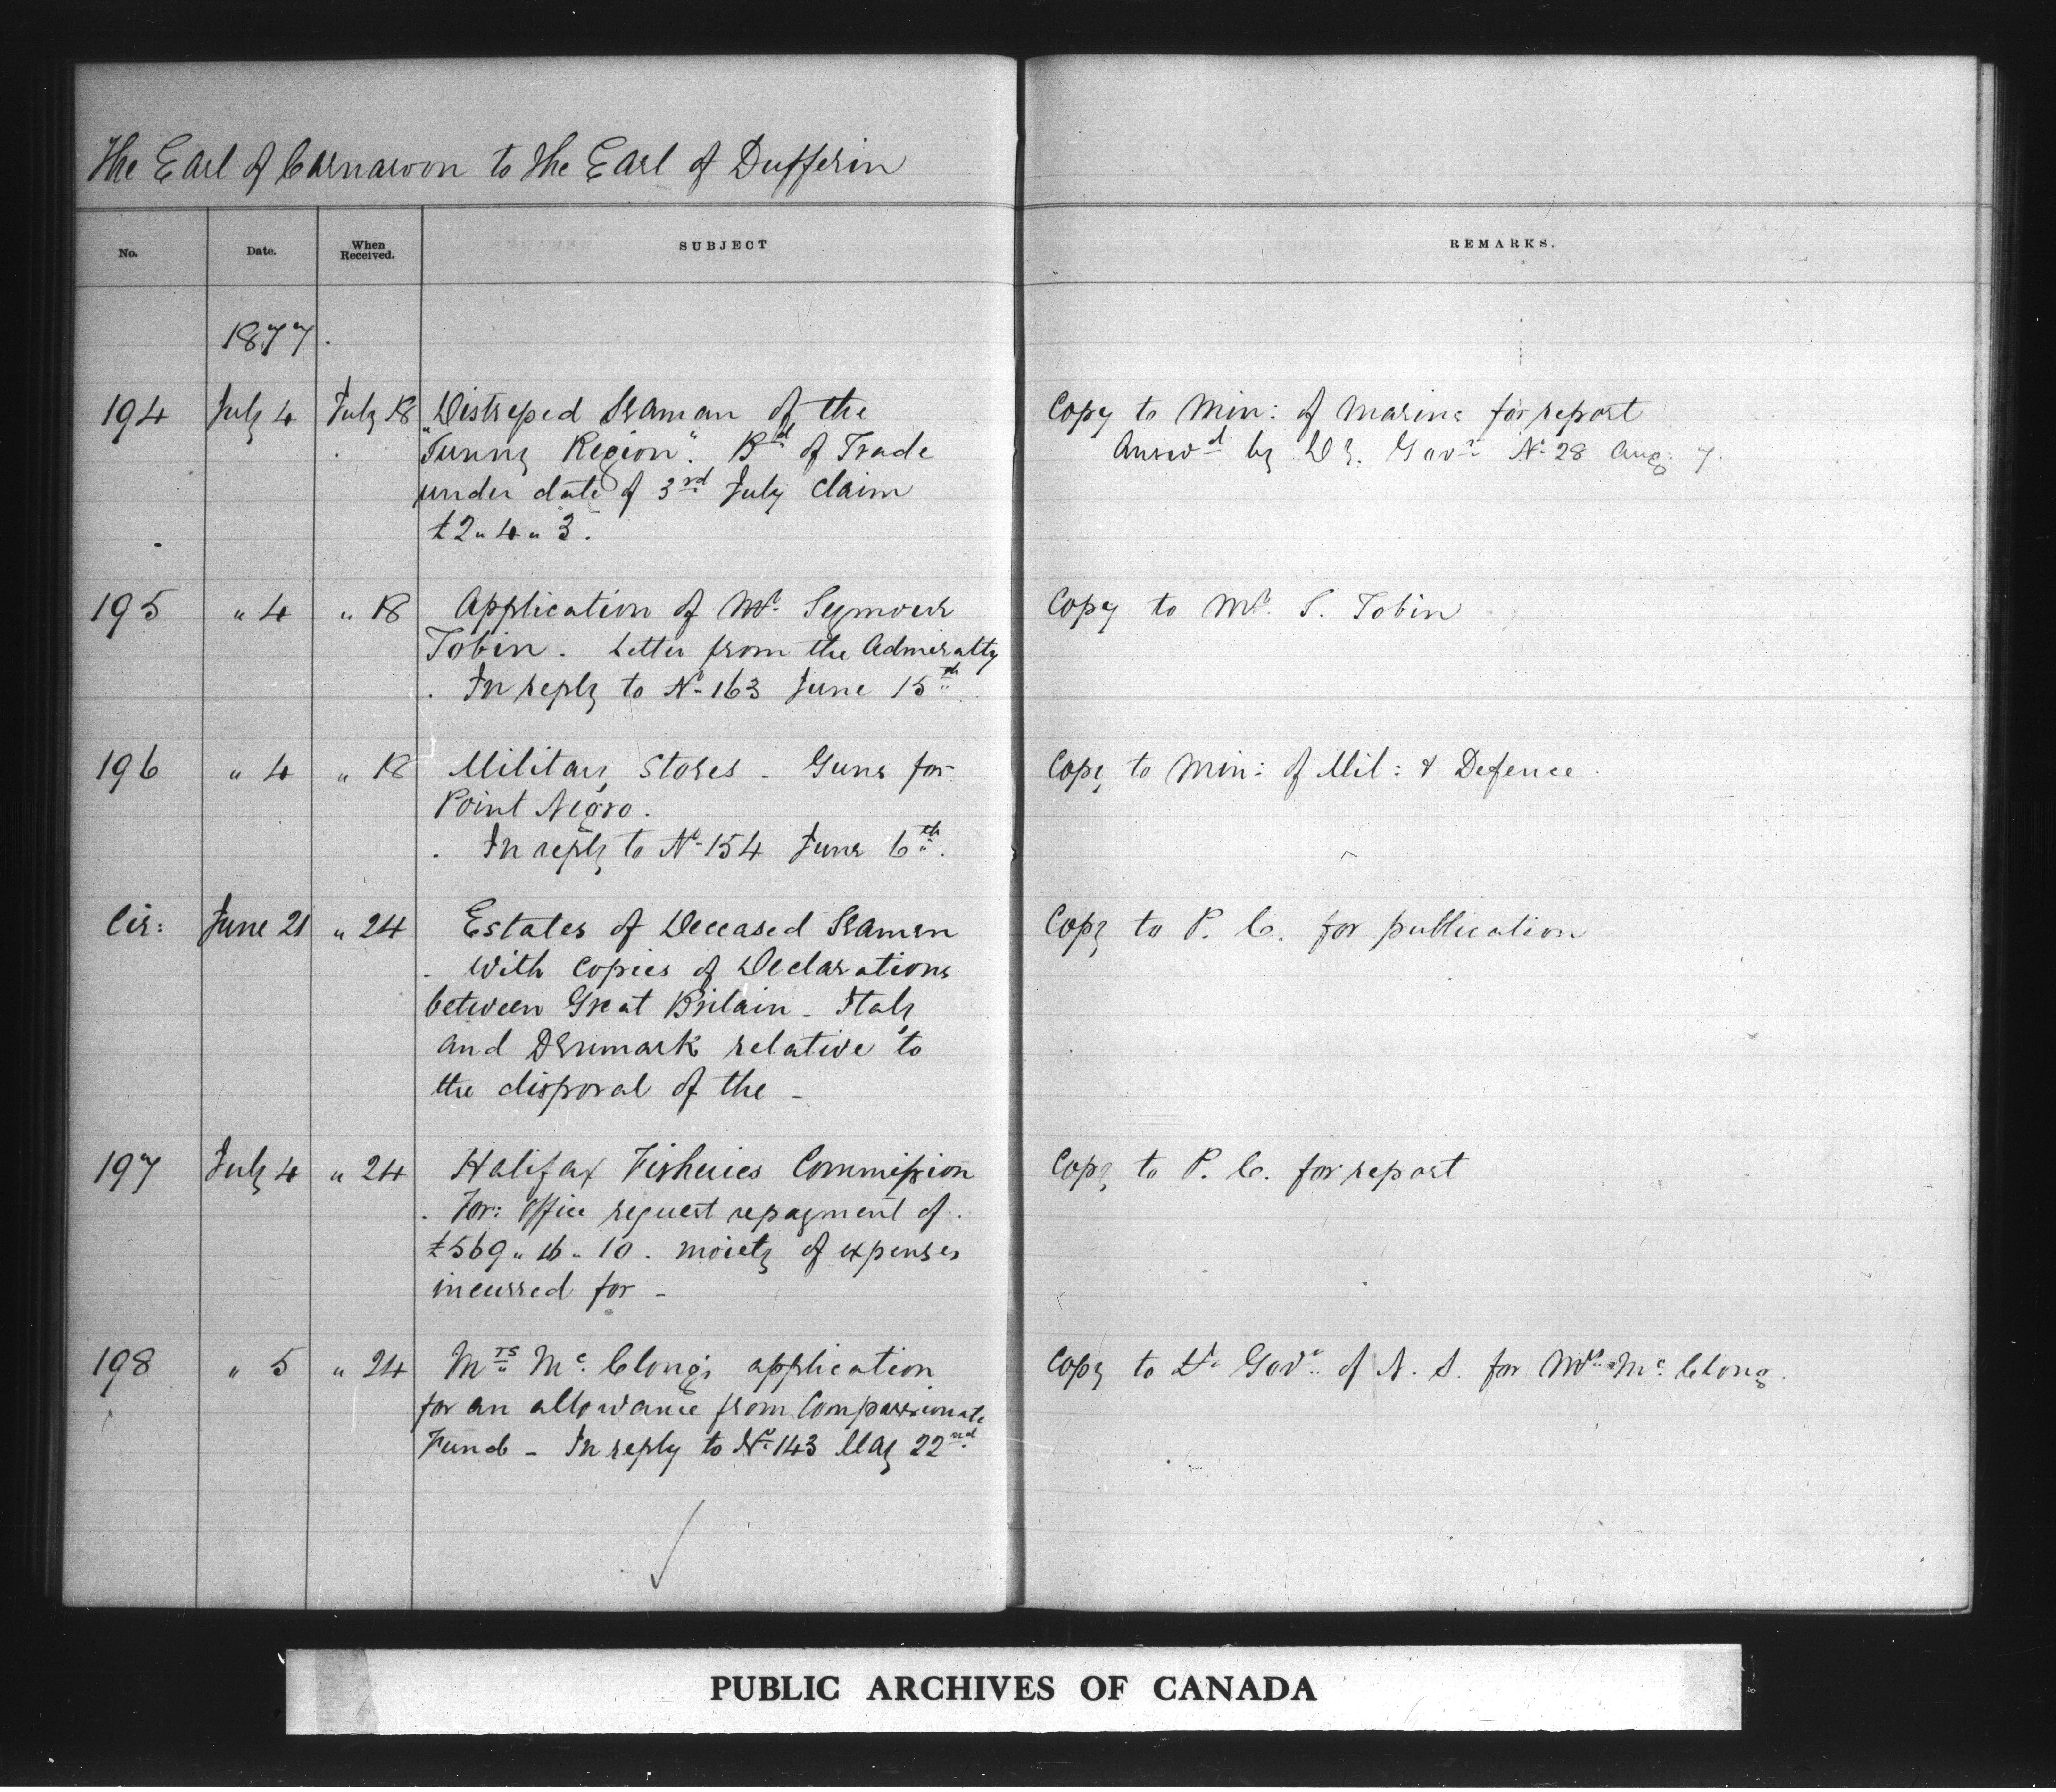 The Earl of Carnarvon to the Earl of Dufferin
No. Date. When Received. SUBJECT REMARKS.
1877.
194 July 4 July 18 Distressed Seaman of the Copy to Min: of Marine for report
"Sunny Region". Bd of Trade Answd by Dy. Govr No 28 Aug: 7.
under date of 3rd July claim
£2 " 4 " 3.
195 " 4 " 18 Application of Mr. Seymour Copy to Mr. S. Tobin
Tobin. Letter from the Admiralty
. In reply to No 163 June 15th.
196 " 4 " 18 Military Stores - Guns for Copy to Min: of Mil: & Defence.
Point Negro.
. In reply to No 154 June 6th.
Cir: June 21 " 24 Estates of Deceased Seamen Copy to P. C. for publication
. With copies of Declarations
between Great Britain - Italy
and Denmark relative to
the disposal of the -
197 July 4 " 24 Halifax Fisheries Commission Copy to P. C. for report
. For: Office request repayment of
£569 " 16 " 10. moiety of expenses
incurred for -
198 " 5 " 24 Mrs Mc. Clong's application Copy to Lt. Govr. of N. S. for Mrs. Mc. Clong.
for an allowance from Compassionate
Fund - In reply to No 143 May 22nd
PUBLIC ARCHIVES OF CANADA